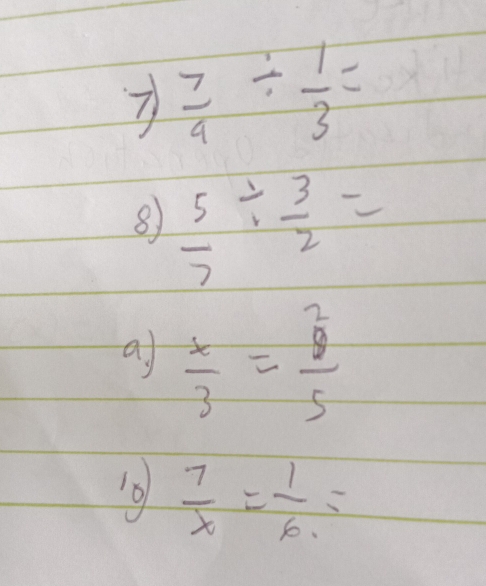 7) 7/9 ÷ 1/3 =
8) 5/7 ÷ 3/2 =
9.) x/3 = 2/5
10) 7/x = 1/6. =